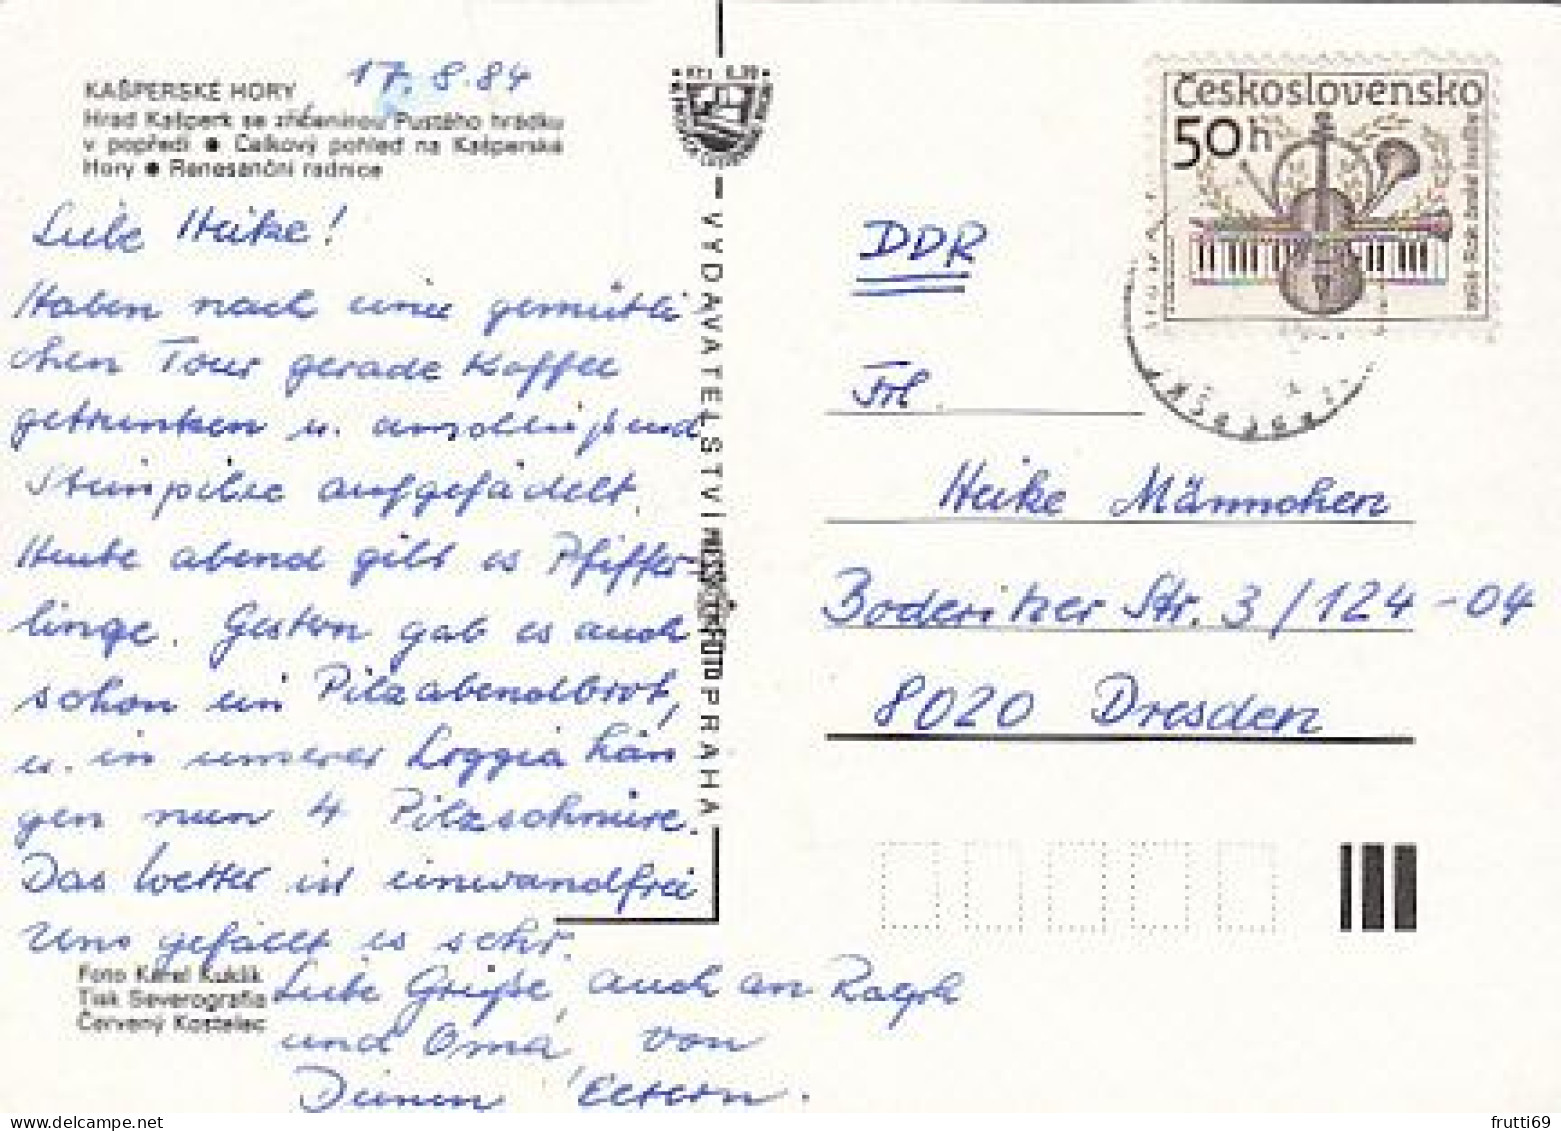 KAŠPERSKÉ HORY
17.8.84
Hrad Kašperk se zříceninou Pustého hrádku
v popředí ● Celkový pohled na Kašperské
Hory ● Renesanční radnice
Liebe Heike!
Haben nach eine gemütli
chen Tour gerade Kaffee
getrunken u. anschließend
Steinpilze aufgefädelt.
Heute abend gibt es Pfiffer-
linge. Gestern gab es auch
schon ein Pilzabendbrot,
u. in unserer Loggia hän
gen nun 4 Pilzschnüre.
Das Wetter ist einwandfrei
Uns gefällt es sehr.
Liebe Grüße, auch an Ralph
und Oma, von
Deinen Eltern.
Foto Karel Kuklík
Tisk Severografia
Červený Kostelec
VYDAVATELSTVÍ PRESSFOTO PRAHA
Československo
50h
DDR
Frl.
Heike Männchen
Boderitzer Str. 3/124-04
8020 Dresden
frutti69